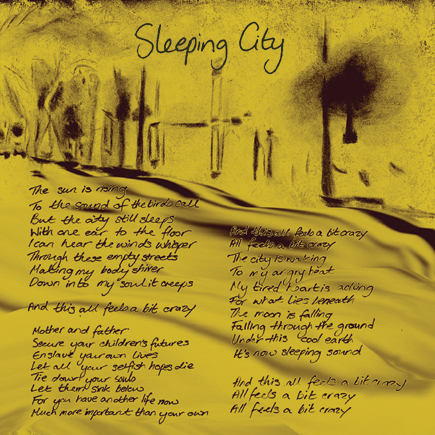 Sleeping City
The sun is rising
To the sound of the birds call
But the city still sleeps
With one ear to the floor
I can hear the winds whisper
Through these empty streets
Making my body shiver
Down into my soul it creeps
And this all feels a bit crazy
Mother and father
Secure your children's futures
Enslave your own lives
Let all your selfist hopes die
Tie down your souls
Let them sink below
For you have another life now
Much more important than your own
And this all feels a bit crazy
All feels a bit crazy
The city is waking
To my angry heat
My tired heart is aching
For what lies beneath
The moon is falling
Falling through the ground
Under this cool earth
It's now sleeping sound
And this all feels a bit crazy
All feels a bit crazy
All feels a bit crazy